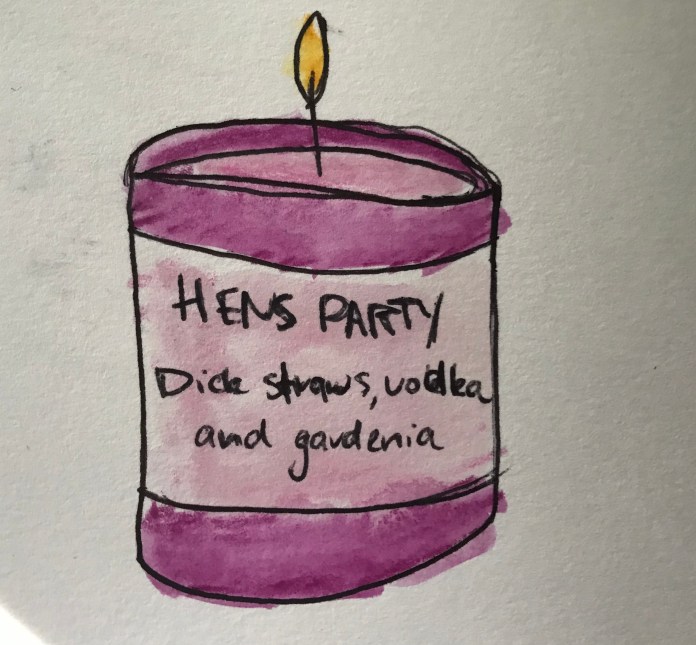 HENS PARTY
Dick straws, vodka
and gardenia